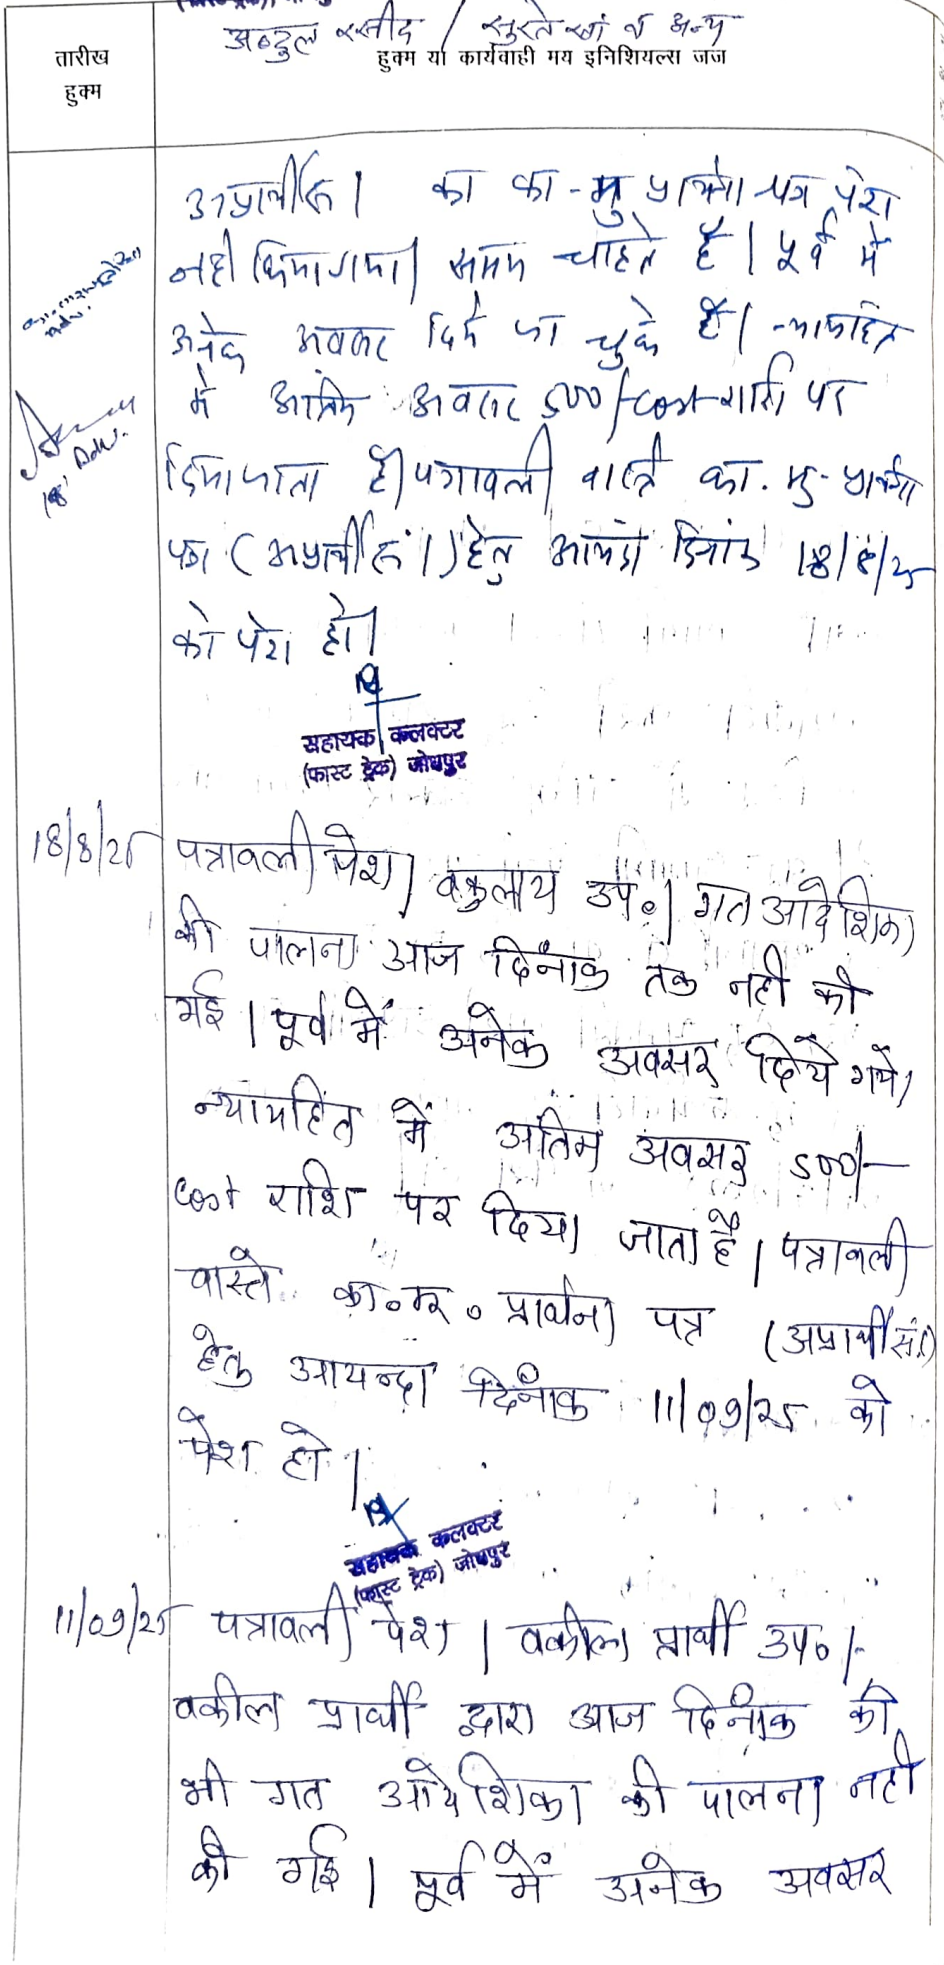 अब्दुल रसीद / सुरते खां व अन्य
तारीख
हुक्म
हुक्म या कार्यवाही मय इनिशियल्स जज
अप्रार्थी सं 1 का का-मु प्रार्थना पत्र पेश
नही किया गया। समय चाहते है। पूर्व में
अनेक अवसर दिये जा चुके है। न्यायहित
में अंतिम अवसर 500/- cost राशि पर
दिया जाता है। पत्रावली वास्ते का. मु- प्रार्थना
पत्र (अप्रार्थी सं 1) हेतु आयंदा दिनांक 18/8/25
को पेश हो।
सहायक कलक्टर
(फास्ट ट्रेक) जोधपुर
Adv.
18/8/25 पत्रावली पेश। वकुलाय उप०। गत आदेशिका
की पालना आज दिनांक तक नही की
गई। पूर्व में अनेक अवसर दिये गये।
न्यायहित में अंतिम अवसर 500/-
cost राशि पर दिया जाता है। पत्रावली
वास्ते का०मु० प्रार्थना पत्र (अप्रार्थी सं.1)
हेतु आयन्दा दिनांक 11/09/25 को
पेश हो।
सहायक कलक्टर
(फास्ट ट्रेक) जोधपुर
11/09/25 पत्रावली पेश। वकील प्रार्थी उप०।-
वकील प्रार्थी द्वारा आज दिनांक को
भी गत आदेशिका की पालना नही
की गई। पूर्व में अनेक अवसर